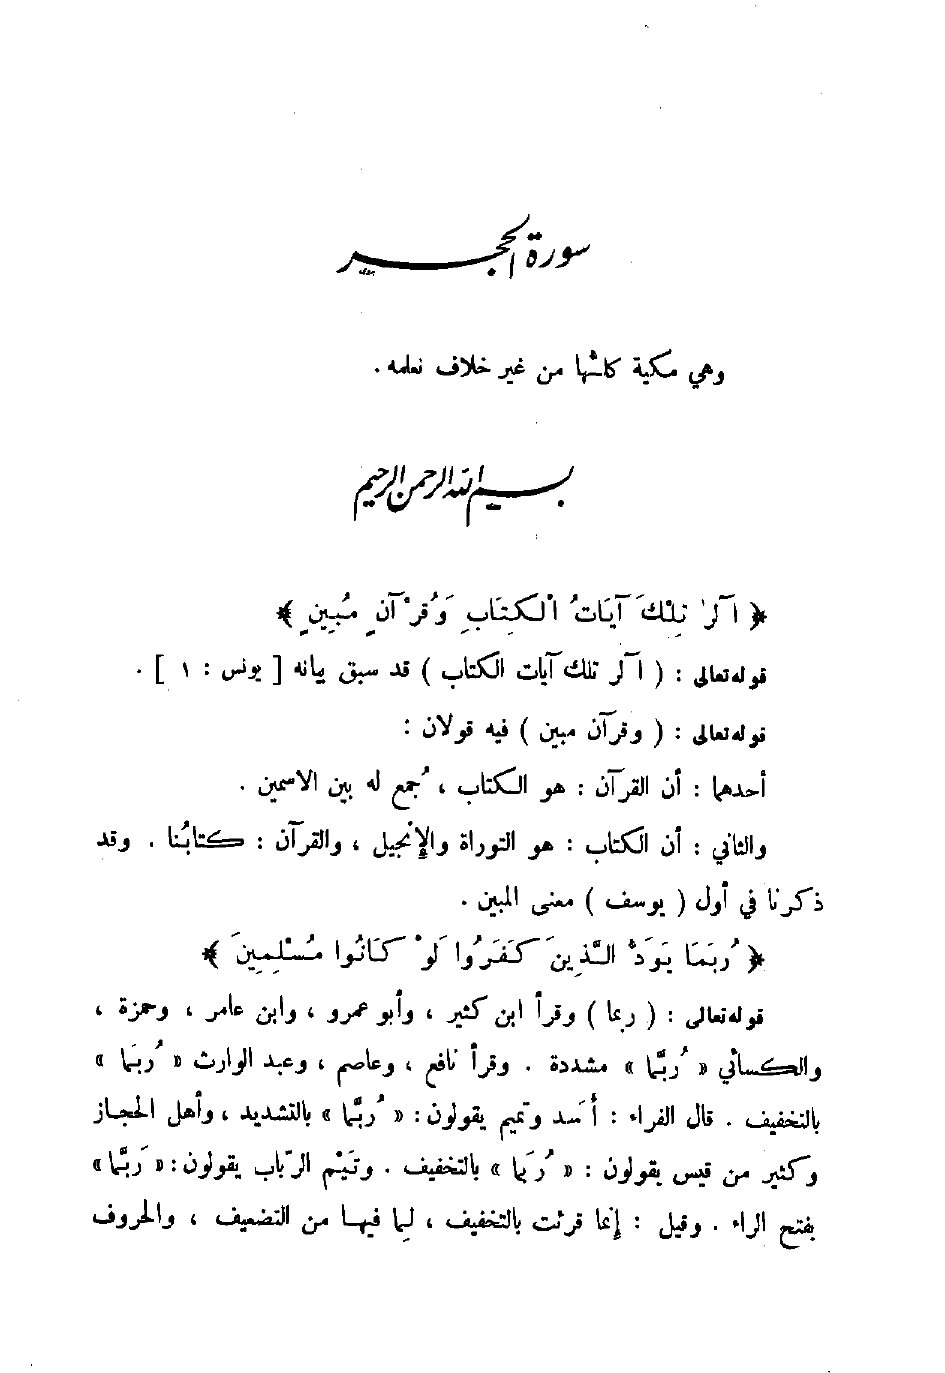 سورة الحجر
وهي مكية كلُّها من غير خلاف نعلمه .
بسم الله الرحمن الرحيم
﴿ آلر تِلْكَ آيَاتُ الْكِتَابِ وَقُرْآنٍ مُبِينٍ ﴾
قوله تعالى : ( آلر تلك آيات الكتاب ) قد سبق بيانه [ يونس : ١ ] .
قوله تعالى : ( وقرآن مبين ) فيه قولان :
أحدهما : أن القرآن : هو الكتاب ، جُمع له بين الاسمين .
والثاني : أن الكتاب : هو التوراة والإنجيل ، والقرآن : كتابُنا . وقد
ذكرنا في أول ( يوسف ) معنى المبين .
﴿ رُبَمَا يَوَدُّ الَّذِينَ كَفَرُوا لَوْ كَانُوا مُسْلِمِينَ ﴾
قوله تعالى : ( ربما ) وقرأ ابن كثير ، وأبو عمرو ، وابن عامر ، وحمزة ،
والكسائي « رُبَّما » مشددة . وقرأ نافع ، وعاصم ، وعبد الوارث « رُبَما »
بالتخفيف . قال الفراء : أَسَد وتميم يقولون : « رُبَّما » بالتشديد ، وأهل الحجاز
وكثير من قيس يقولون : « رُبَما » بالتخفيف . وتَيْم الرّباب يقولون : « رَبَّما »
بفتح الراء . وقيل : إِنما قرئت بالتخفيف ، لِما فيها من التضعيف ، والحروف